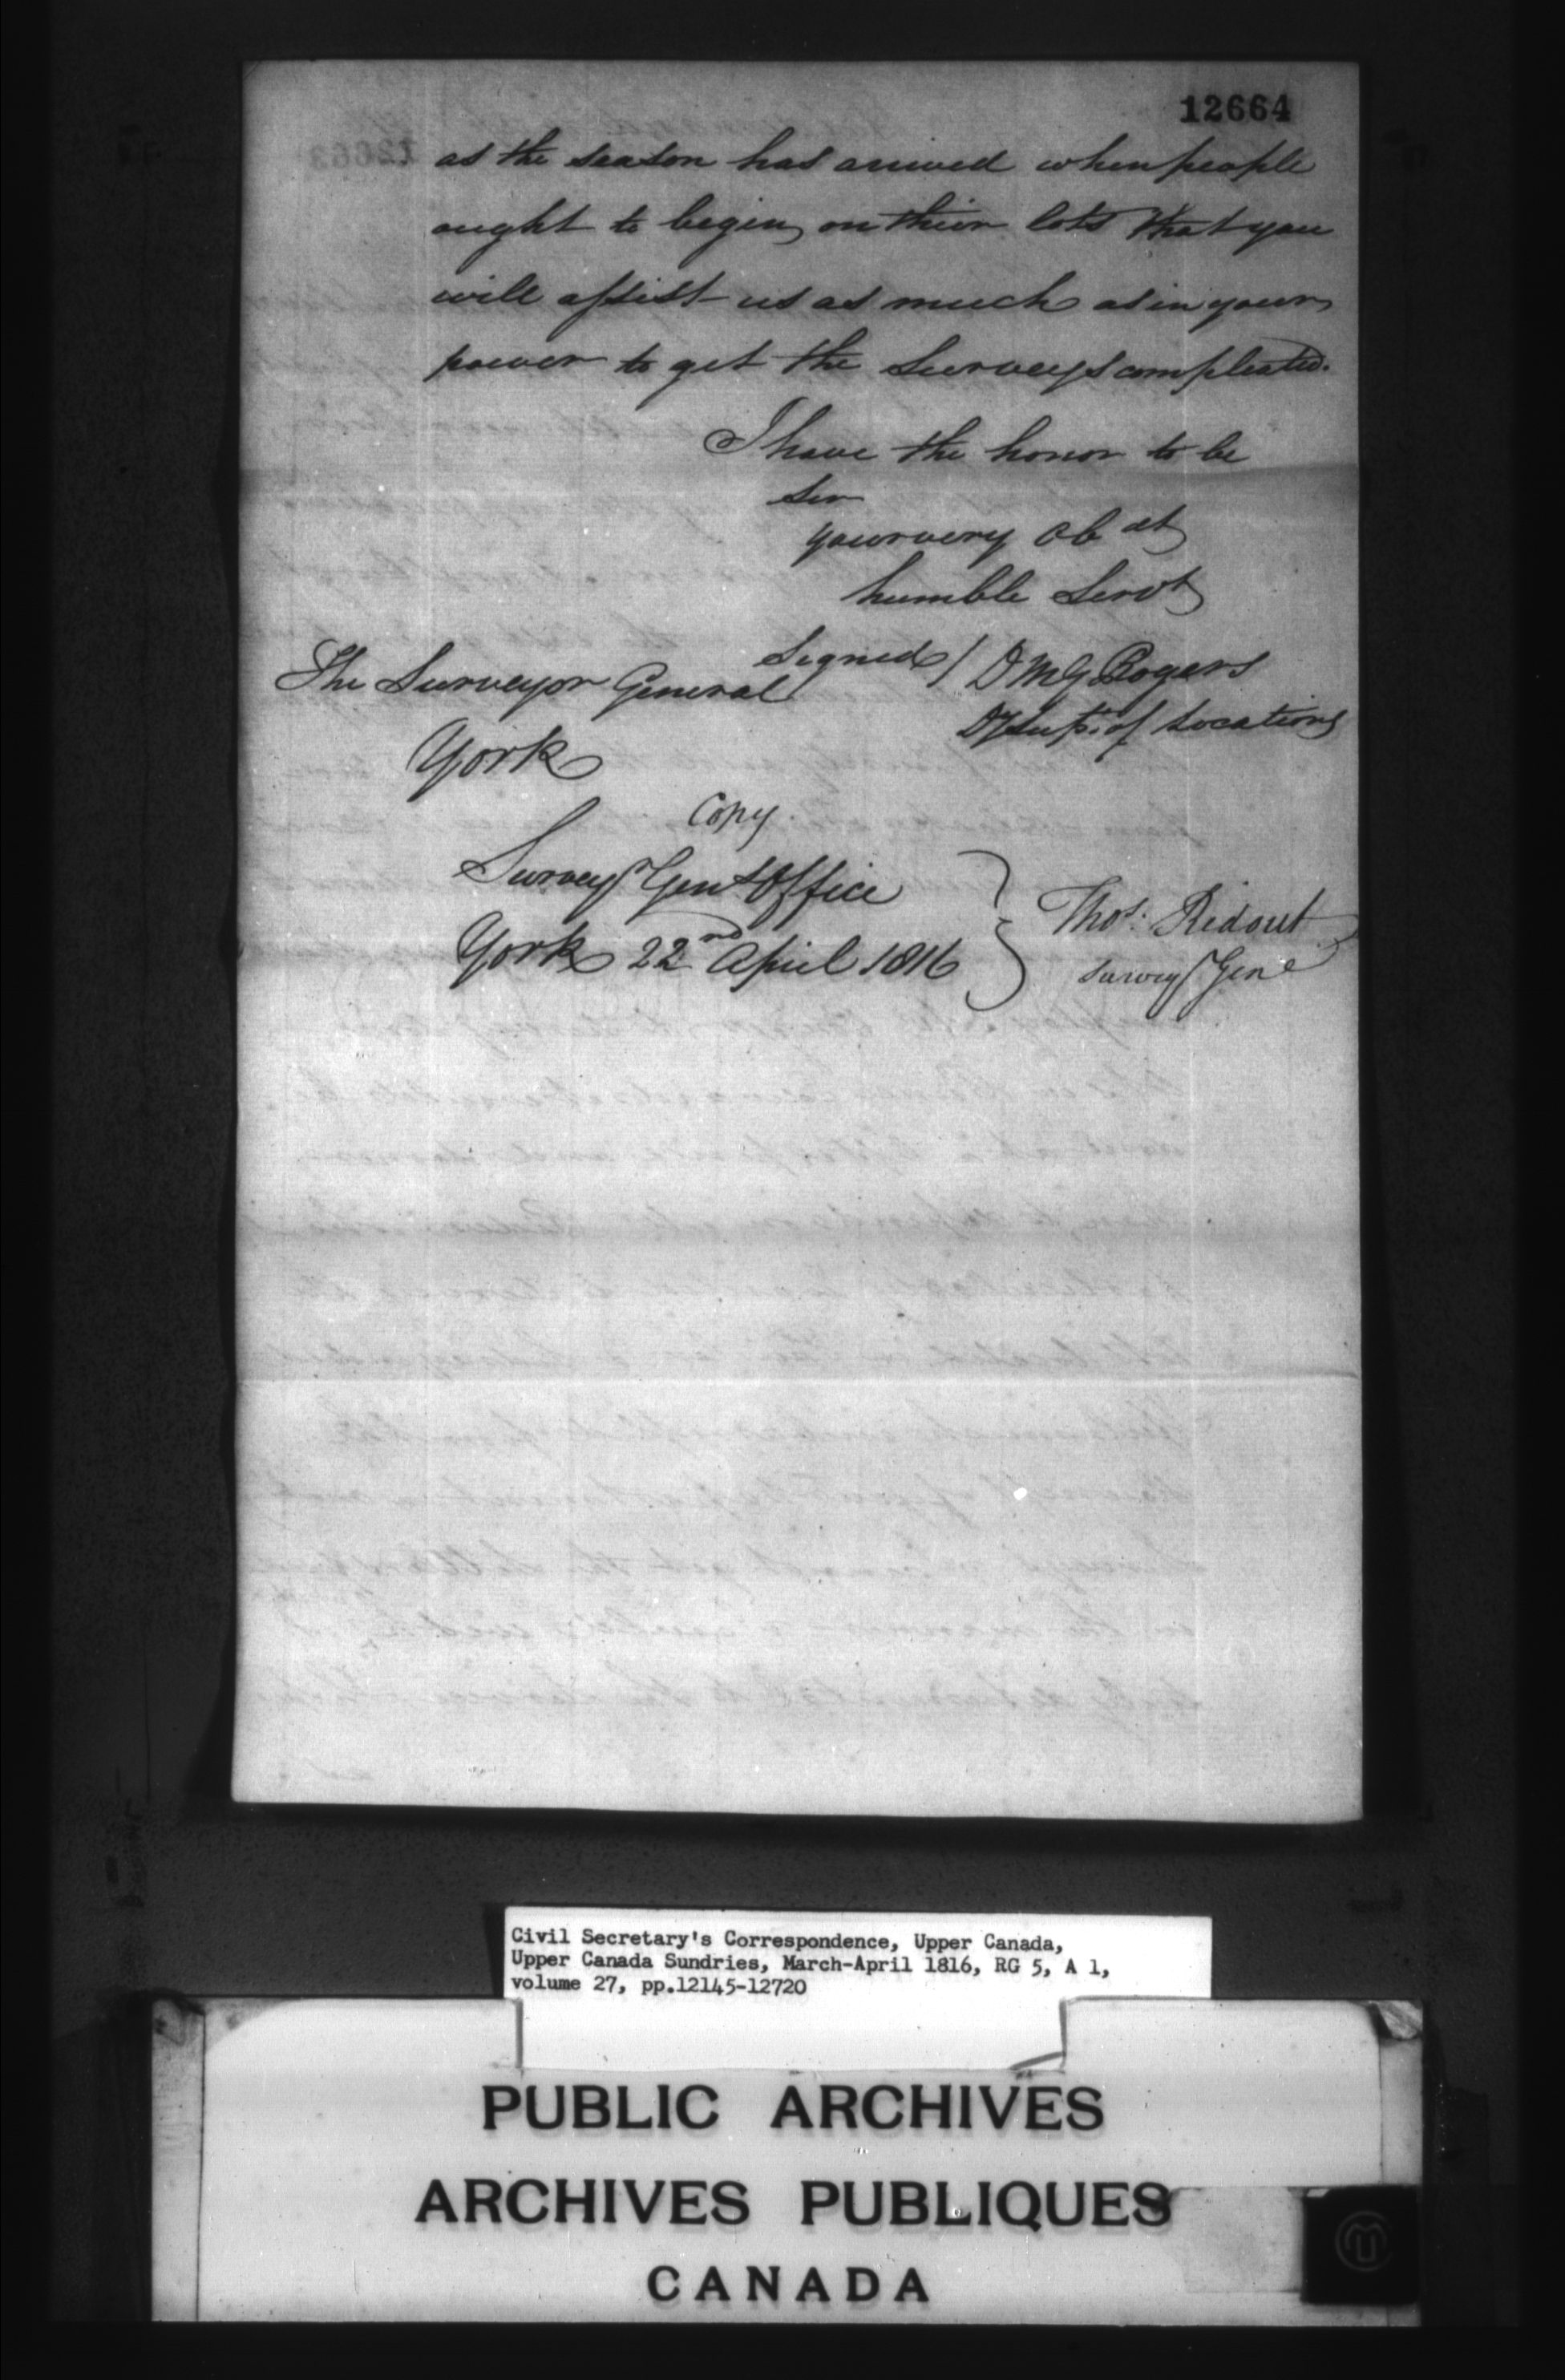 12664
as the season has arrived when people
ought to begin on their lots that you
will assist us as much as in your
power to get the Surveys compleated.
I have the honor to be
Sir
your very Ob dt
humble Servt
Signed / D McG Rogers
Dy Supt. of Locations
The Surveyor General
York
Copy
Surveyr Genls Office
York 22nd April 1816
Thos. Ridout
Surveyr Genl
Civil Secretary's Correspondence, Upper Canada,
Upper Canada Sundries, March-April 1816, RG 5, A 1,
volume 27, pp.12145-12720
PUBLIC ARCHIVES
ARCHIVES PUBLIQUES
CANADA